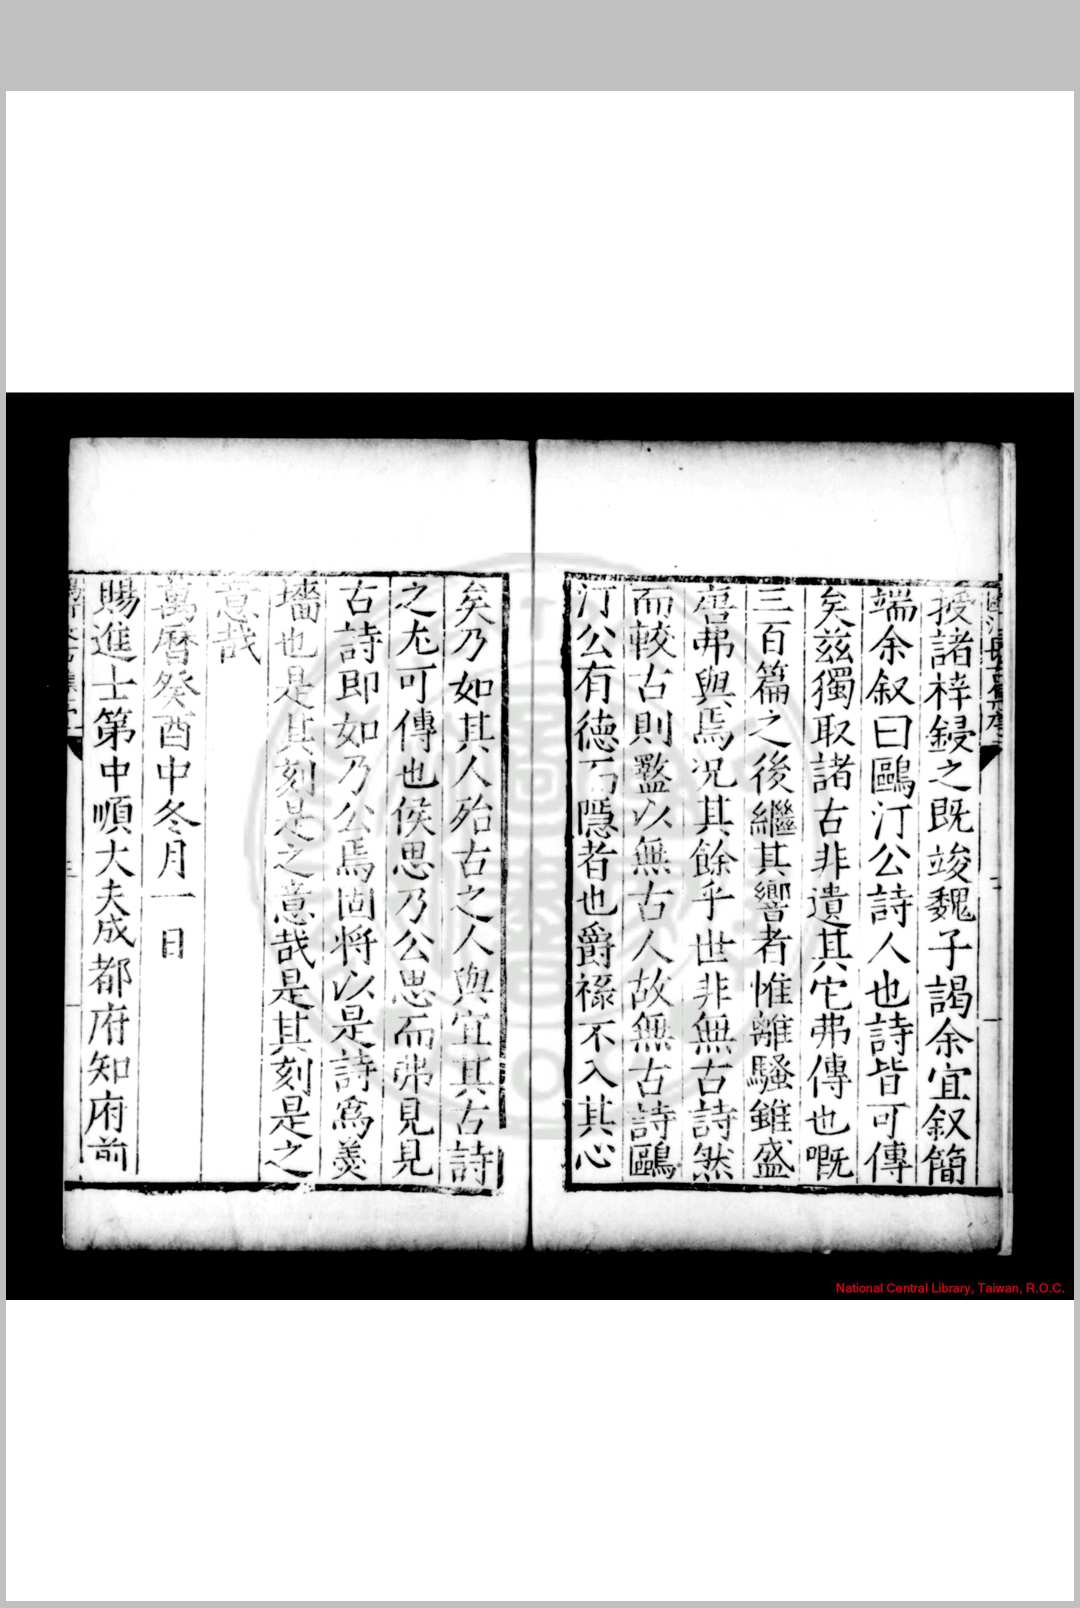 授諸梓鋟之既竣魏子謁余宜叙簡
端余叙曰鷗汀公詩人也詩皆可傳
矣兹獨取諸古非遺其它弗傳也嘅
三百篇之後繼其響者惟離騷雖盛
唐弗與焉况其餘乎世非無古詩然
而較古則盭以無古人故無古詩鷗
汀公有德而隱者也爵祿不入其心
矣乃如其人殆古之人與宜其古詩
之尤可傳也侯思乃公思而弗見見
古詩即如乃公焉固将以是詩爲羮
墻也是其刻是之意哉是其刻是之
意哉
萬曆癸酉中冬月一日
賜進士第中順大夫成都府知府前
National Central Library, Taiwan, R.O.C.